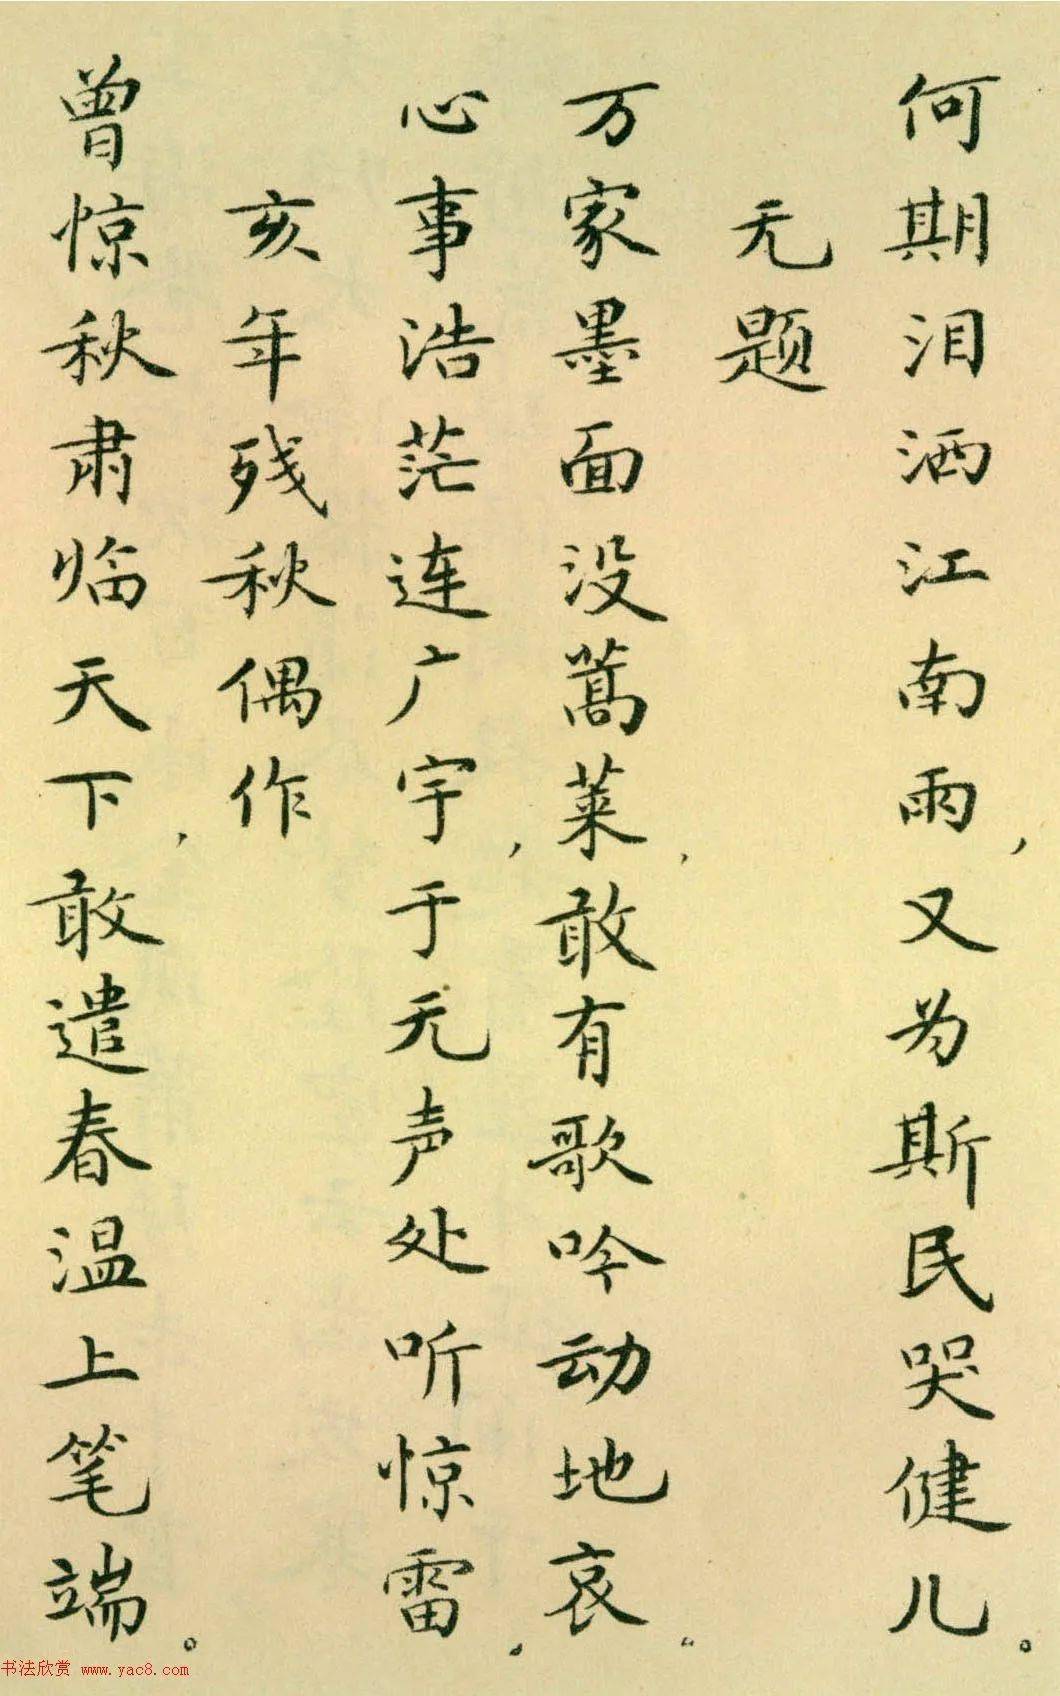 何期泪洒江南雨，又为斯民哭健儿。
无题
万家墨面没蒿莱，敢有歌吟动地哀。
心事浩茫连广宇，于无声处听惊雷。
亥年残秋偶作
曾惊秋肃临天下，敢遣春温上笔端。
书法欣赏 www.yac8.com